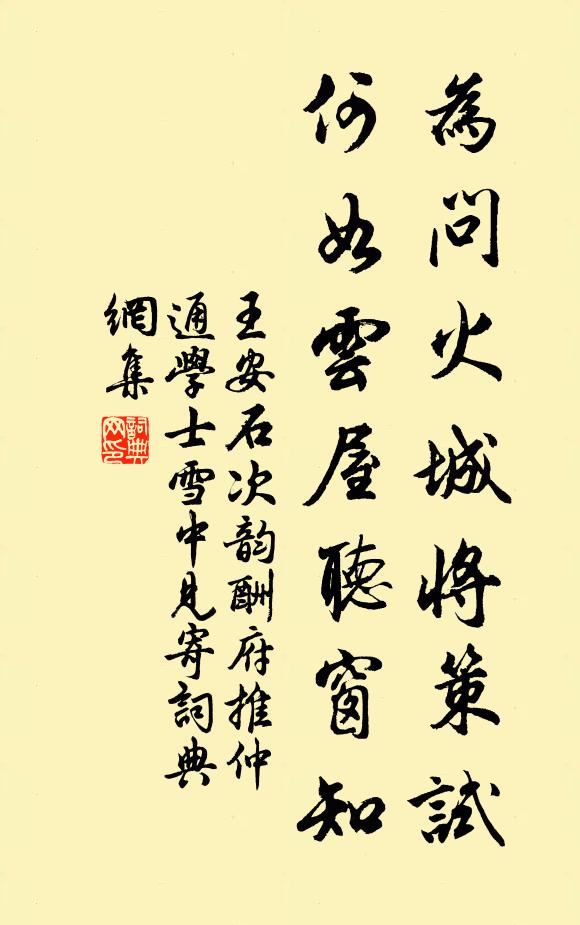 為問火城將策試
何如雲屋聽窗知
王安石次韵酬府推仲
通學士雪中見寄詞典
網集
詞典网印